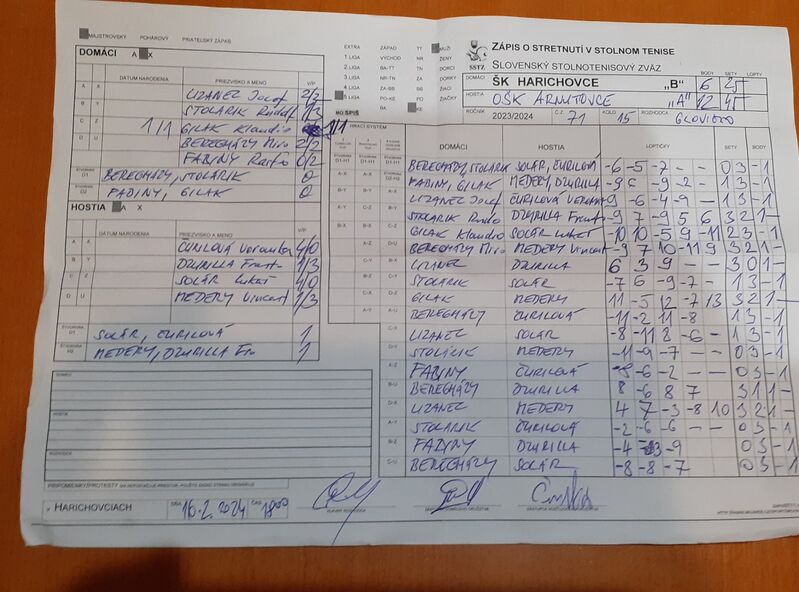 MAJSTROVSKÝ POHÁROVÝ PRIATEĽSKÝ ZÁPAS
DOMÁCI A X
DÁTUM NARODENIA PRIEZVISKO A MENO V/P
A X LIZANEC Jozef 2/2
B Y STOLARIK Rudolf 1/3
C Z 1/1 GILAK Klaudio 1/1
D U BEREGHÁZY Miro 2/2
FABINY Rasťo 0/2
ŠTVORHRA D1 BEREGHÁZY, STOLARIK 0
ŠTVORHRA D2 FABINY, GILAK 0
HOSTIA A X
DÁTUM NARODENIA PRIEZVISKO A MENO V/P
A X ČURILOVÁ Veronika 4/0
B Y DZURILLA Frant. 1/3
C Z SOLÁR Lukáš 4/0
D U MEDERY Vincent 1/3
ŠTVORHRA D1 SOLÁR, ČURILOVÁ 1
MEDERY, DZURILLA Fra 1
DOMÁCI
HOSTIA
ROZHODCA
PRIPOMIENKY/PROTESTY
V HARICHOVCIACH DŇA 16.2.2024 ČAS 18:00
EXTRA ZÁPAD TT MUŽI
1. LIGA VÝCHOD NR ŽENY
2. LIGA BA-TT TN DORCI
3. LIGA NR-TN ZA DORKY
4. LIGA ZA-BB BB ŽIACI
5. LIGA PO-KE PO ŽIAČKY
BA KE
MO SPIŠ
SSTZ
ZÁPIS O STRETNUTÍ V STOLNOM TENISE
SLOVENSKÝ STOLNOTENISOVÝ ZVÄZ
BODY SETY LOPTY
DOMÁCI ŠK HARICHOVCE „B" 6 25
HOSTIA OŠK ARNUTOVCE „A" 12 45
ROČNÍK 2023/2024 Č.Z. 71 KOLO 15 ROZHODCA GLOVICKO
HRACÍ SYSTÉM DOMÁCI HOSTIA LOPTIČKY SETY BODY
BEREGHÁZY, STOLARIK SOLÁR, ČURILOVÁ -6 -5 -7 - - 0 3 - 1
FABINY, GILAK MEDERY, DZURILLA -9 6 -9 -2 - 1 3 - 1
LIZANEC Jozef ČURILOVÁ Veronika 9 -6 -4 -9 - 1 3 - 1
STOLARIK Rudo DZURILLA Frant -9 7 -9 5 6 3 2 1 -
GILAK Klaudio SOLÁR Lukáš -10 10 -5 9 -11 2 3 - 1
BEREGHÁZY Miro MEDERY Vincent -9 7 10 -11 9 3 2 1 -
LIZANEC DZURILLA 6 3 9 - - 3 0 1 -
STOLARIK SOLÁR -7 6 -9 -7 - 1 3 - 1
GILAK MEDERY 11 -5 12 -7 13 3 2 1 -
BEREGHÁZY ČURILOVÁ -11 -2 11 -8 1 3 - 1
LIZANEC SOLÁR -8 -11 8 -6 - 1 3 - 1
STOLARIK MEDERY -11 -9 -7 - - 0 3 - 1
FABINY ČURILOVÁ -8 -6 -2 - - 0 3 - 1
BEREGHÁZY DZURILLA 8 -6 8 7 3 1 1 -
LIZANEC MEDERY 4 7 -3 -8 10 3 2 1 -
STOLARIK ČURILOVÁ -2 -6 -6 - - 0 3 - 1
FABINY DZURILLA -4 -13 -9 0 3 - 1
BEREGHÁZY SOLÁR -8 -8 -7 0 3 - 1